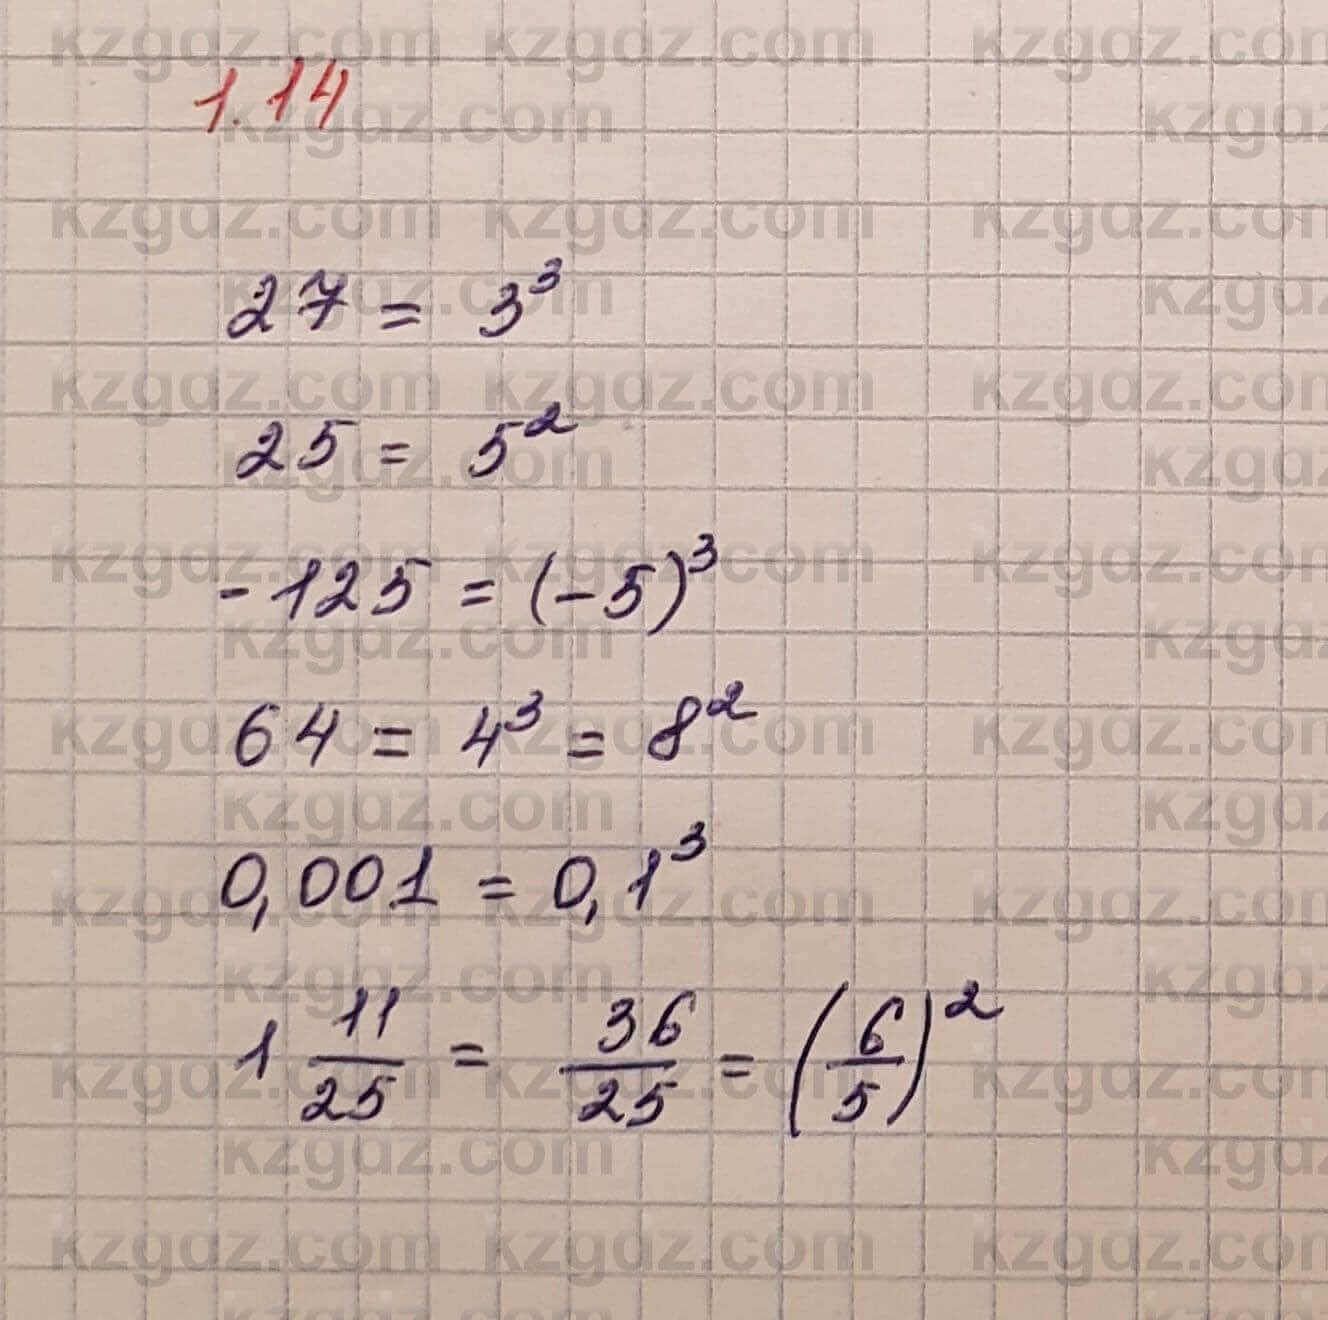 1.14
27 = 3³
25 = 5²
-125 = (-5)³
64 = 4³ = 8²
0,001 = 0,1³
1 11/25 = 36/25 = (6/5)²
kzgdz.com